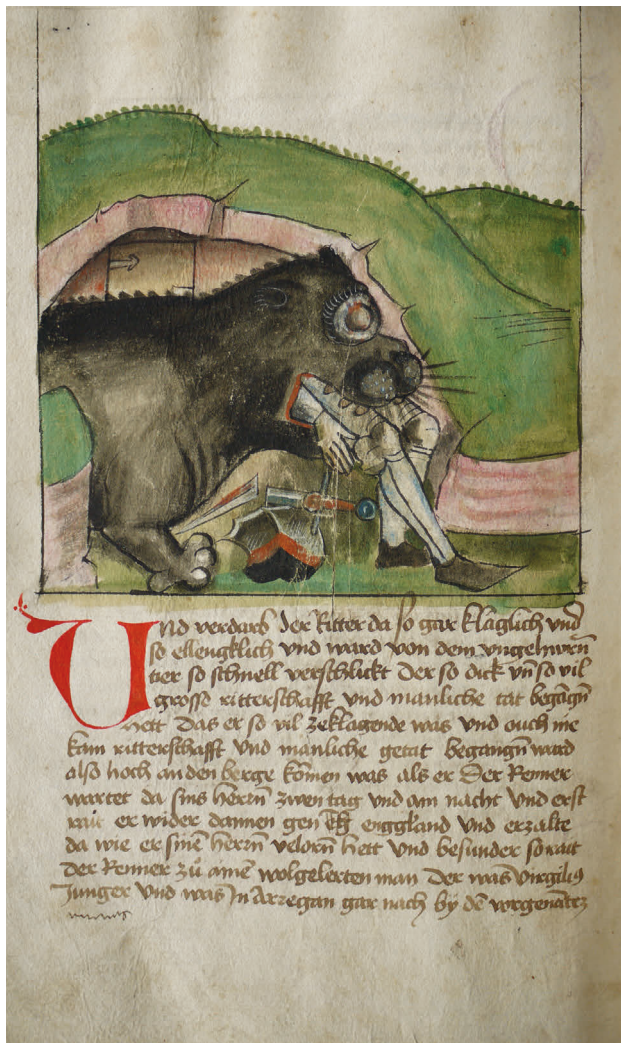 Und verdarb der Ritter da so gar kläglich und
so ellengklich und ward von dem ungehüren
tier so schnell verschlickt Der so dick vnd so vil
grosse ritterschafft und manliche tat begāgn
hett Das er so vil zeklagende was und ouch nie
kam ritterschafft Und manliche getat begangn ward
also hoch an den berge kōmen was als er Der Renner
wartet da sins herrn zwen tag und ain nacht Und erst
rait er wider dannen gen engglandt Und erzalte
da wie er sinē herrn velorn hett Und besunder so rait
der Renner zů ainē wolgelerten man Der was Virgilius
Junger Und was In Arregan gar nach by dē vorgenātez